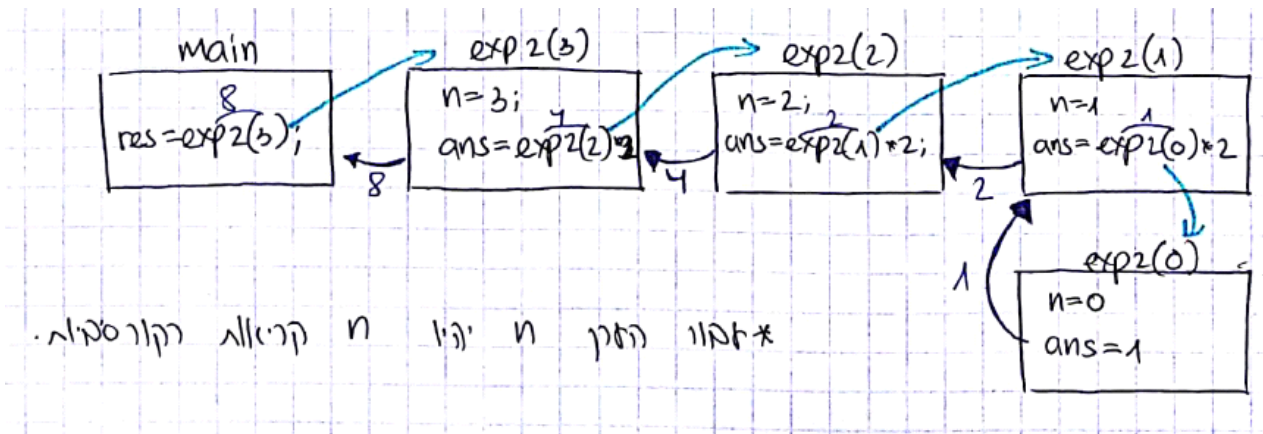 main
8
res=exp2(3);
8
exp2(3)
n=3;
4
ans=exp2(2)*2
4
exp2(2)
n=2;
2
ans=exp2(1)*2;
2
exp2(1)
n=1
1
ans=exp2(0)*2
1
exp2(0)
n=0
ans=1
*עבור הערך n יהיו n קריאות רקורסביות.